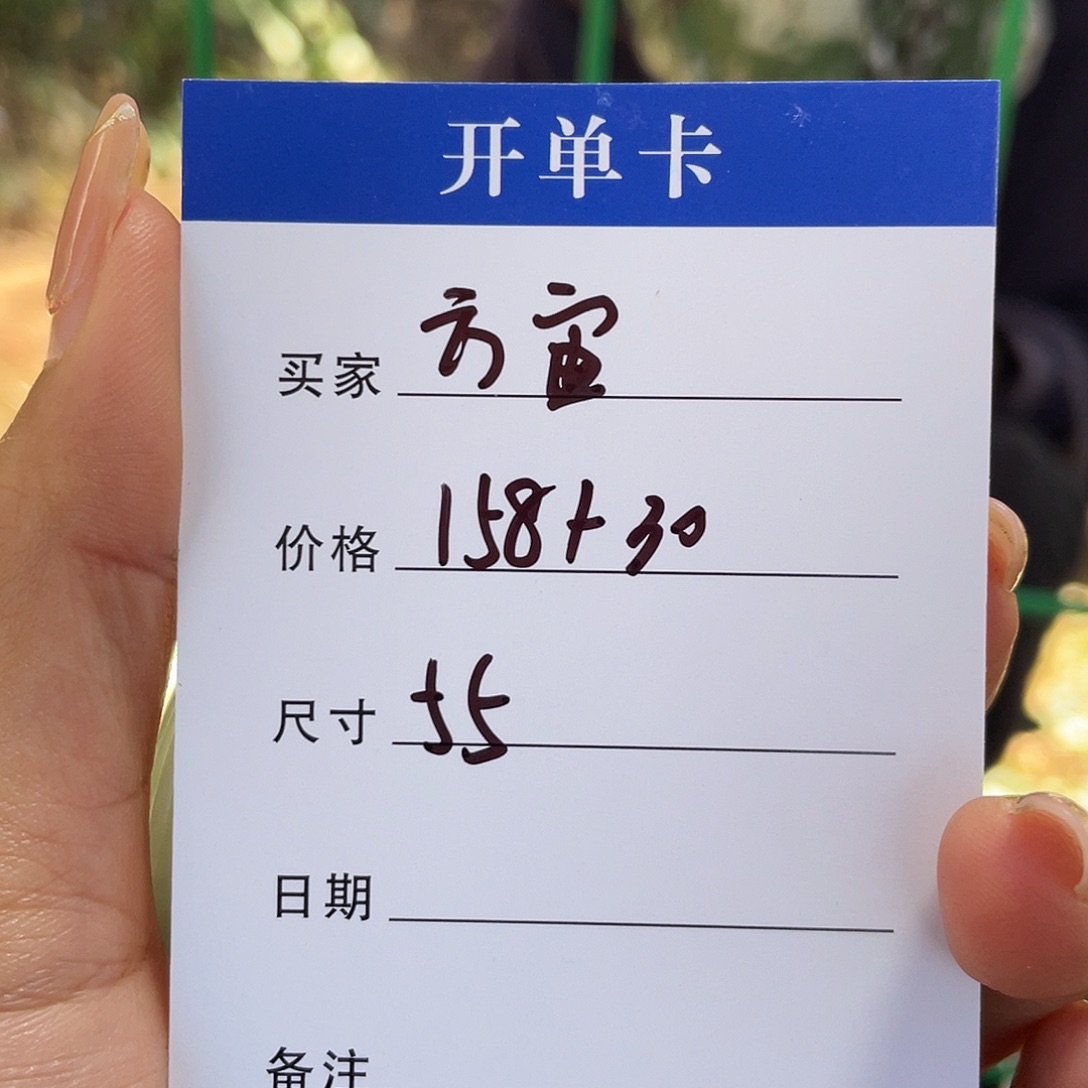 开单卡
买家 方
价格 158+30
尺寸 55
日期
备注